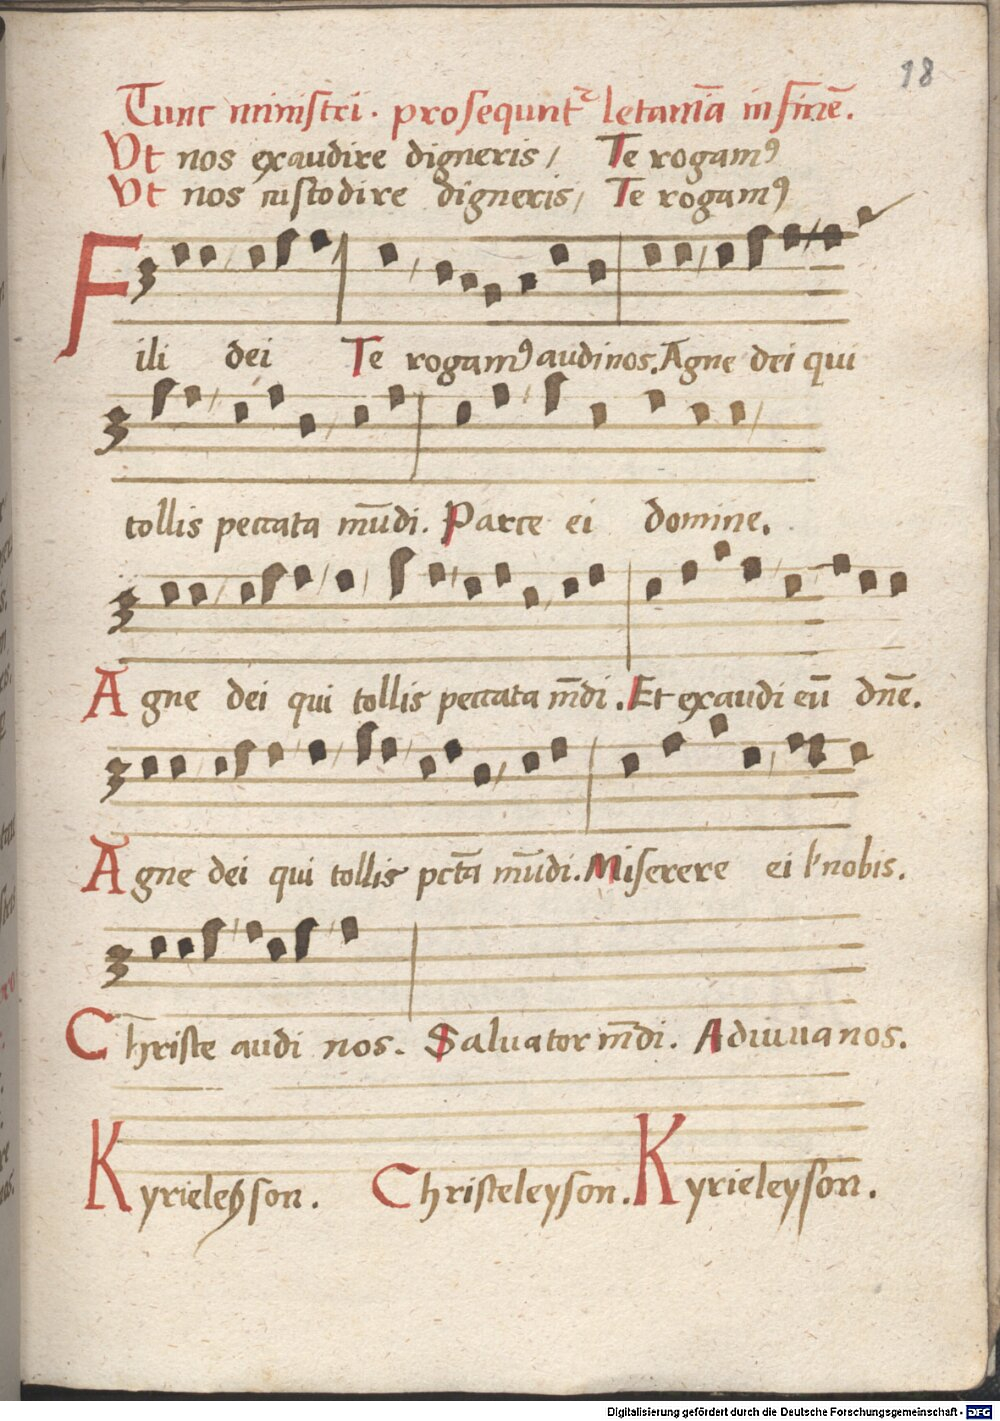 18
Tunc ministri. proseqунtᷣ letaniā in finē.
Ut nos exaudire digneris / Te rogamꝰ
Ut nos custodire digneris / Te rogamꝰ
Fili dei Te rogamꝰ audi nos. Agne dei qui
tollis peccata mūdi. Parce ei domine.
Agne dei qui tollis peccata m̄di. Et exaudi eū dn̄e.
Agne dei qui tollis pctā mūdi. Miserere ei l' nobis.
Christe audi nos. Salvator m̄di. Adiuva nos.
Kyrieleyson. Christeleyson. Kyrieleyson.
Digitalisierung gefördert durch die Deutsche Forschungsgemeinschaft - DFG